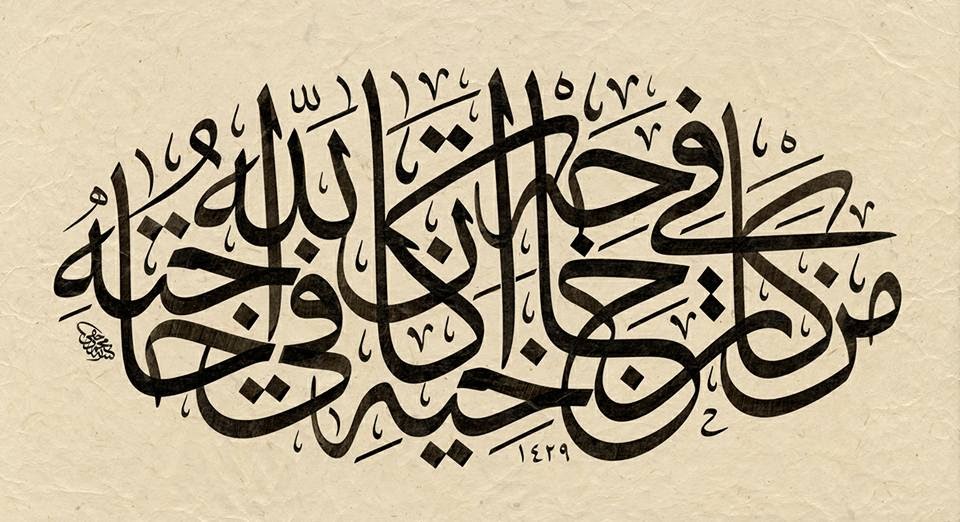 من كان في حاجة أخيه كان الله في حاجته
١٤٢٩